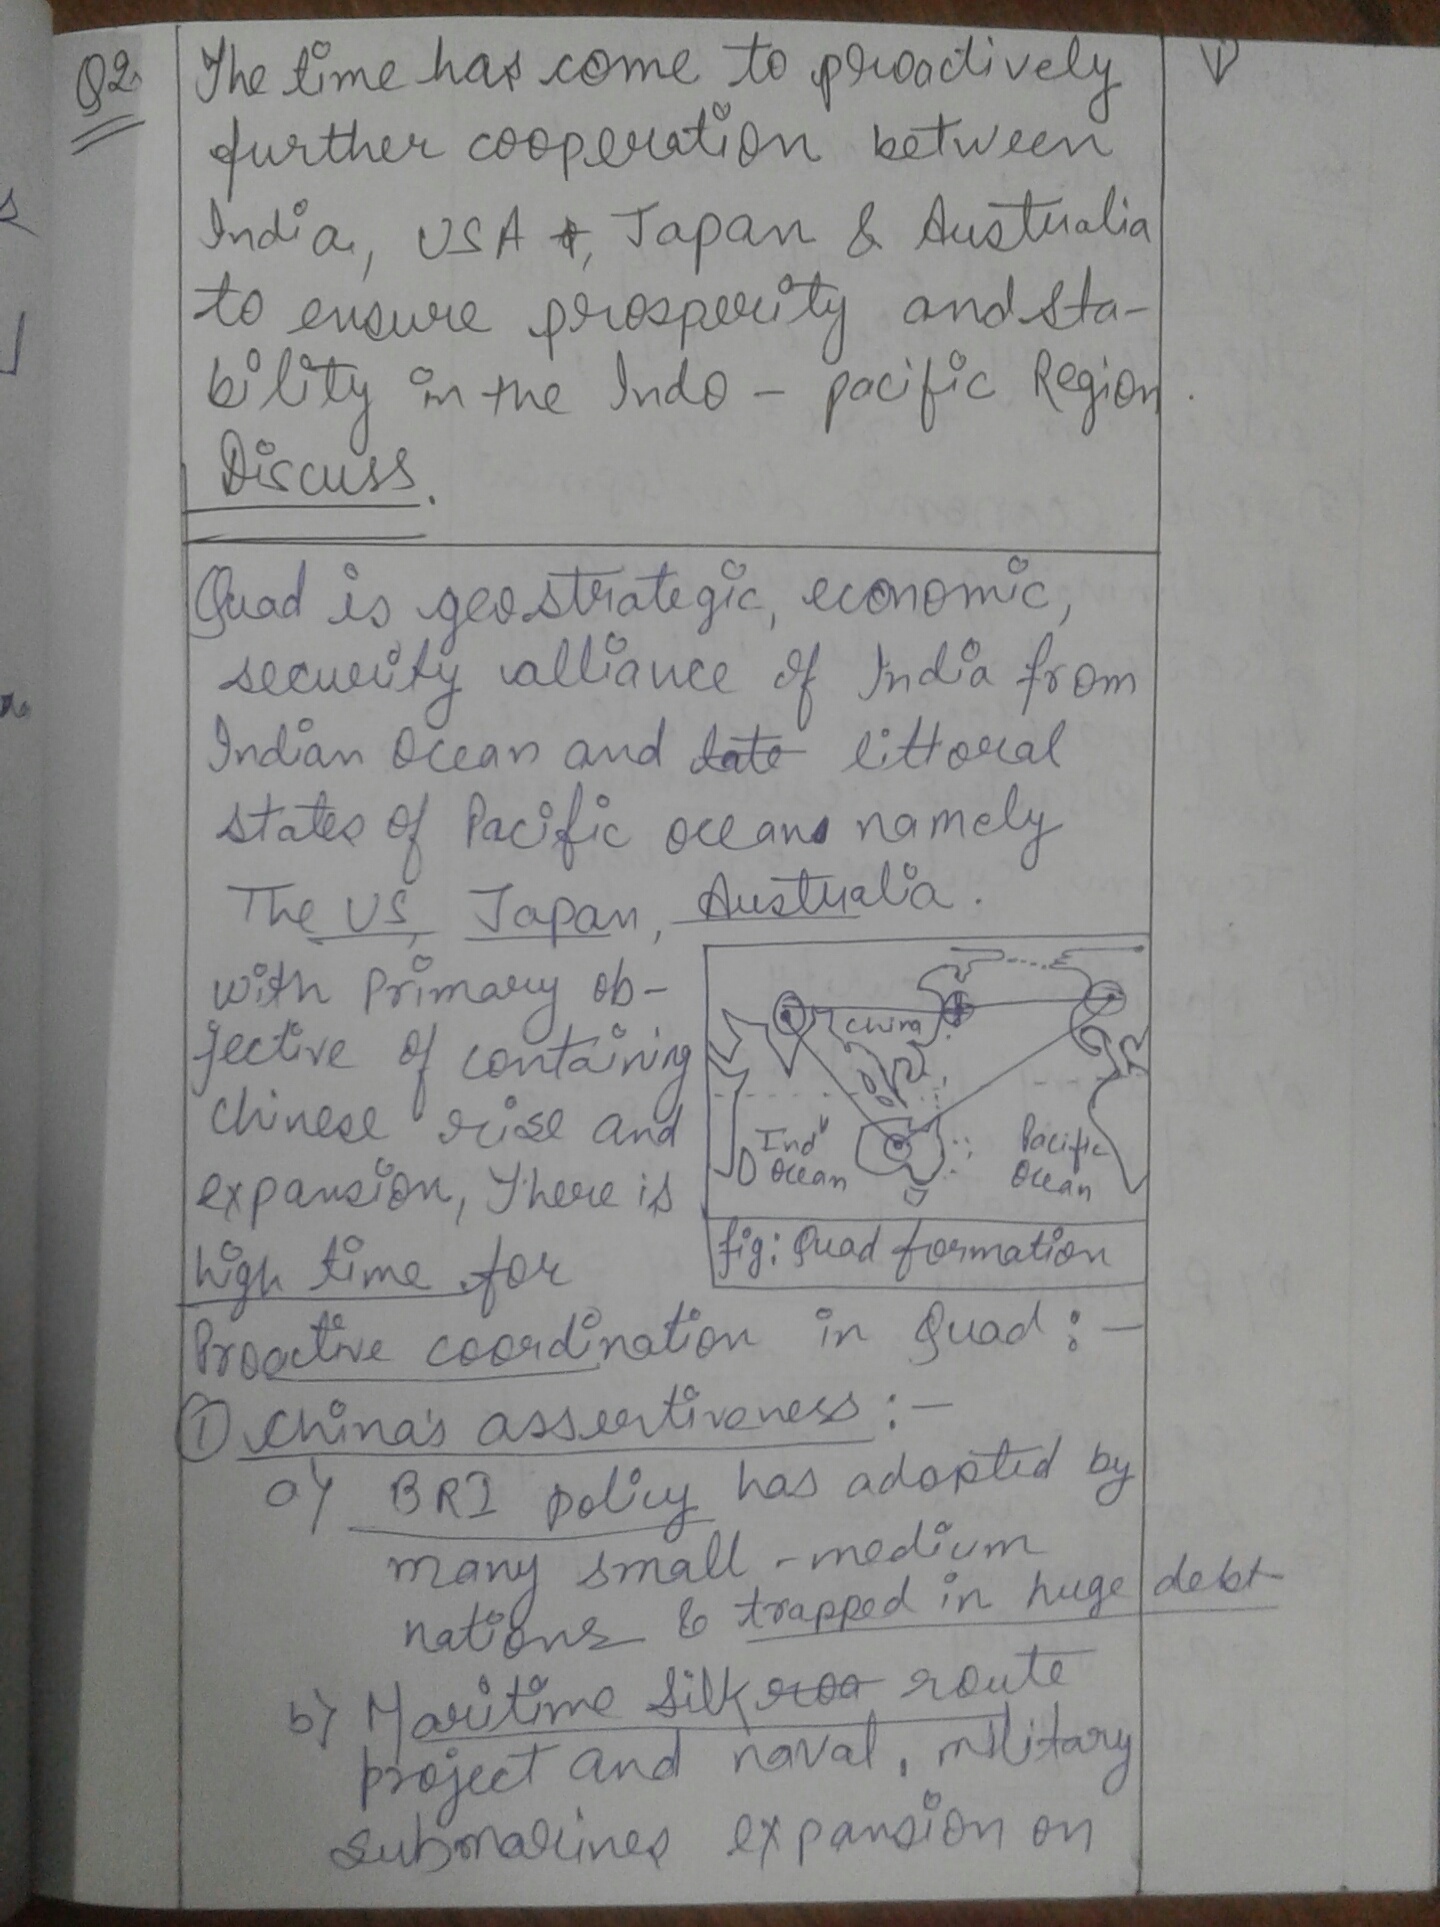 Q2.
The time has come to proactively
further cooperation between
India, USA, Japan & Australia
to ensure prosperity and sta-
bility in the Indo - pacific Region.
Discuss.
Quad is geostrategic, economic,
security alliance of India from
Indian Ocean and littoral
states of Pacific oceans namely
The US, Japan, Australia.
with Primary ob-
jective of containing
Chinese rise and
expansion, There is
high time for
China
Ind"
Ocean
Pacific
Ocean
fig: Quad formation
Proactive coordination in Quad :-
① China's assertiveness :-
a) BRI policy has adopted by
many small - medium
nations & trapped in huge debt
b) Maritime Silk route
project and naval, military
submarines expansion on